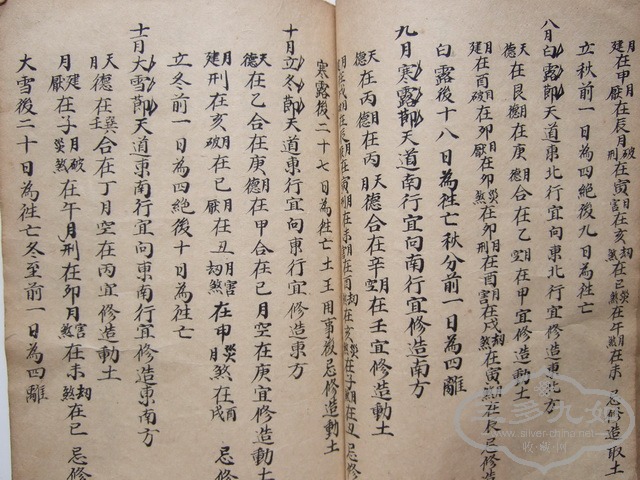 建在申月破在寅災在午月煞在未忌修造取土
立秋前一日為四絕後九日為徃亡
八月白露節天道東北行宜向東北行宜修造東北方
天德在艮月德在庚月德合在乙月空在甲宜修造動土
月建在酉月破在卯月厭在卯月刑在酉月害在戌劫煞在寅災煞在卯月煞在辰忌修造
白露後十八日為徃亡秋分前一日為四離
九月寒露節天道南行宜向南行宜修造南方
天德在丙月德在丙天德合在辛月空在壬宜修造動土
寒露後二十七日為徃亡土王用事後忌修造動土
十月立冬節天道東行宜向東行宜修造東方
天德在乙合在庚月德在甲合在己月空在庚宜修造動土
月建刑在亥月破在巳月厭在丑月害劫煞在申災月煞在戌酉忌修
立冬前一日為四絕後十日為徃亡
十一月大雪節天道東南行宜向東南行宜修造東南方
天月德在巽壬合在丁月空在丙宜修造動土
月建厭在子月破災煞在午月刑在卯月害煞在未劫煞在巳忌修
大雪後二十日為徃亡冬至前一日為四離
多多九如
www.silver-china.net
收藏州